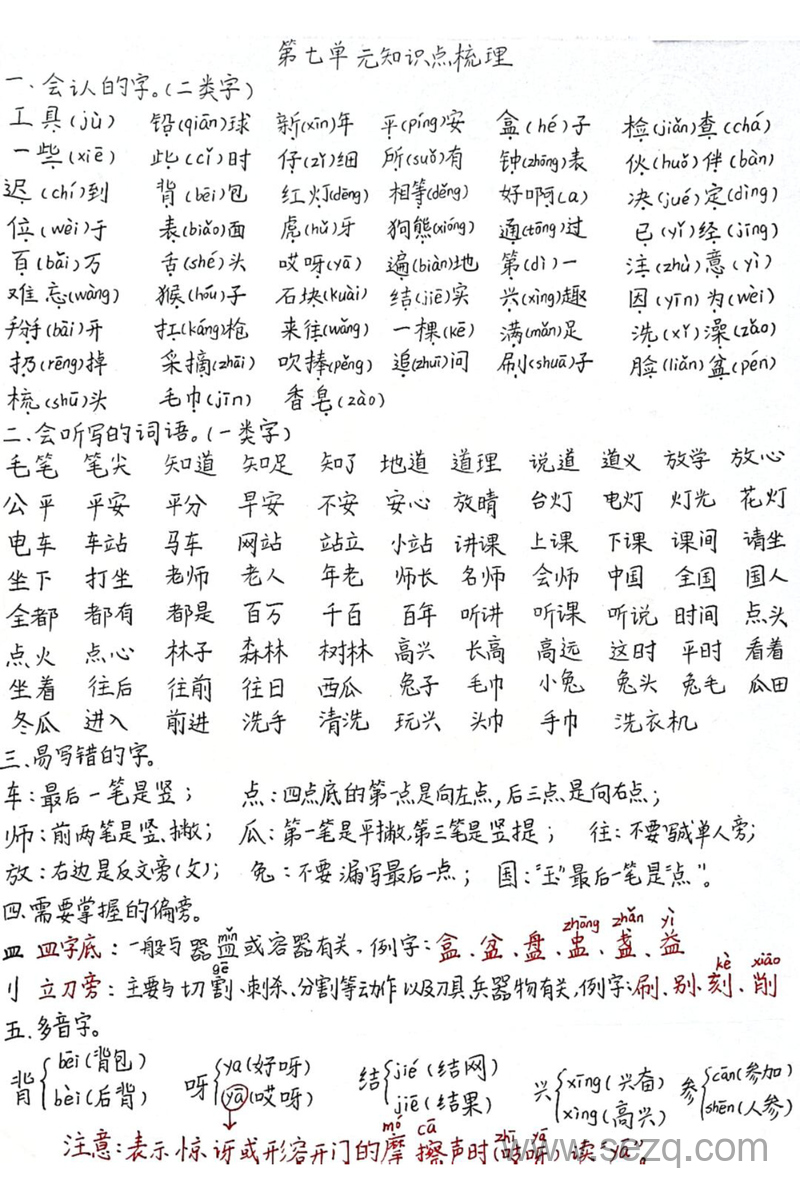 第七单元知识点梳理
一.会认的字。(二类字)
工具(jù) 铅(qiān)球 新(xīn)年 平(píng)安 盒(hé)子 检(jiǎn)查(chá)
一些(xiē) 此(cǐ)时 仔(zǐ)细 所(suǒ)有 钟(zhōng)表 伙(huǒ)伴(bàn)
迟(chí)到 背(bēi)包 红灯(dēng) 相等(děng) 好啊(a) 决(jué)定(dìng)
位(wèi)于 表(biǎo)面 虎(hǔ)牙 狗熊(xióng) 通(tōng)过 已(yǐ)经(jīng)
百(bǎi)万 舌(shé)头 哎呀(yā) 遍(biàn)地 第(dì)一 注(zhù)意(yì)
难忘(wàng) 猴(hóu)子 石块(kuài) 结(jiē)实 兴(xìng)趣 因(yīn)为(wèi)
掰(bāi)开 扛(káng)枪 来往(wǎng) 一棵(kē) 满(mǎn)足 洗(xǐ)澡(zǎo)
扔(rēng)掉 采摘(zhāi) 吹捧(pěng) 追(zhuī)问 刷(shuā)子 脸(liǎn)盆(pén)
梳(shū)头 毛巾(jīn) 香皂(zào)
二.会听写的词语。(一类字)
毛笔 笔尖 知道 知足 知了 地道 道理 说道 道义 放学 放心
公平 平安 平分 早安 不安 安心 放晴 台灯 电灯 灯光 花灯
电车 车站 马车 网站 站立 小站 讲课 上课 下课 课间 请坐
坐下 打坐 老师 老人 年老 师长 名师 会师 中国 全国 国人
全都 都有 都是 百万 千百 百年 听讲 听课 听说 时间 点头
点火 点心 林子 森林 树林 高兴 长高 高远 这时 平时 看着
坐着 往后 往前 往日 西瓜 兔子 毛巾 小兔 兔头 兔毛 瓜田
冬瓜 进入 前进 洗手 清洗 玩兴 头巾 手巾 洗衣机
三.易写错的字。
车:最后一笔是竖; 点:四点底的第一点是向左点,后三点是向右点;
师:前两笔是竖、撇; 瓜:第一笔是平撇,第三笔是竖提; 往:不要写成单人旁;
放:右边是反文旁(攵); 兔:不要漏写最后一点; 国:"玉"最后一笔是"点"。
四.需要掌握的偏旁。
皿 皿字底:一般与器皿(mǐn)或容器有关,例字:盒、盆、盘、盅(zhōng)、盏(zhǎn)、益(yì)
刂 立刀旁:主要与切割(gē)、刺杀、分割等动作以及刀具、兵器物有关,例字:刷、别、刻(kè)、削(xiāo)
五.多音字。
背{bēi(背包) bèi(后背) 呀{ya(好呀) yā(哎呀) 结{jié(结网) jiē(结果) 兴{xīng(兴奋) xìng(高兴) 参{cān(参加) shēn(人参)
注意:表示惊讶或形容开门的摩(mó)擦(cā)声时(吱(zhī)呀(yā))读"yā"。
www.sezq.com